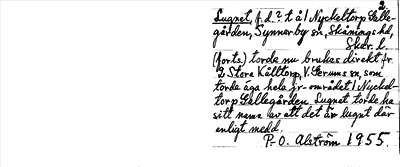 2.
Lugnet, f.d.? t å 1 Nyckeltorp Gälle-
gården, Synnerby sn, Skånings hd,
Skbr. l.
(forts.) torde nu brukas direkt fr.
2 Stora Kålltorp, V. Gerums sn, som
torde äga hela jr-området 1 Nyckel-
torp Gällegården. Lugnet torde ha
sitt namn av att det är lugnt där
enligt medd.
P-O. Alström 1955.